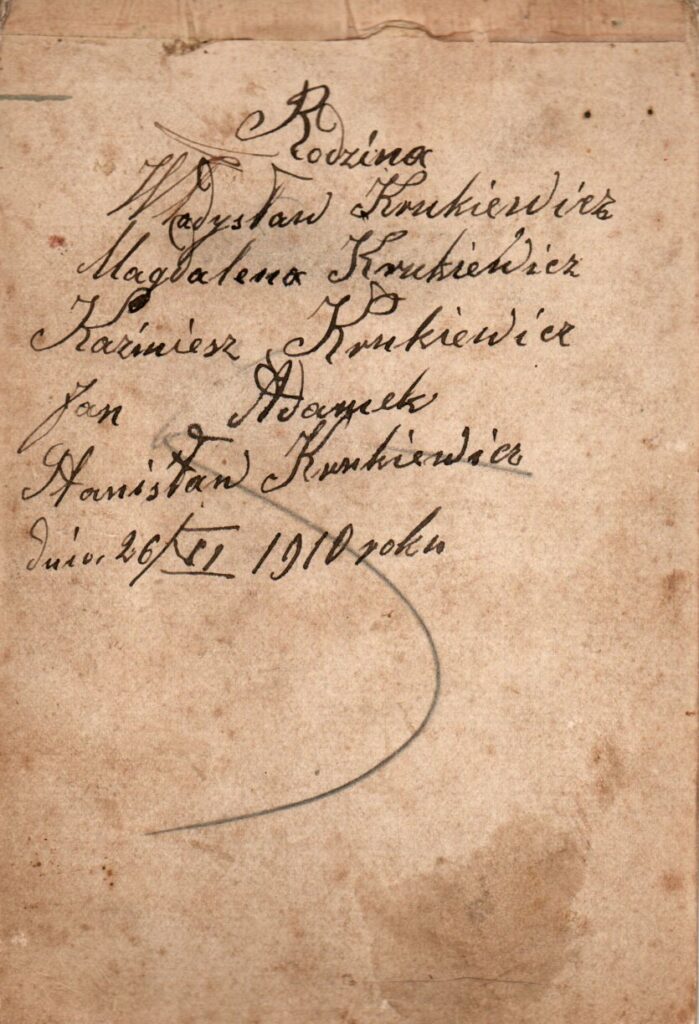 Rodzina
Władysław Krukiewicz
Magdalena Krukiewicz
Kazimiesz Krukiewicz
Jan Adamek
Stanisław Krukiewicz
dnia 26/VI 1910 roku